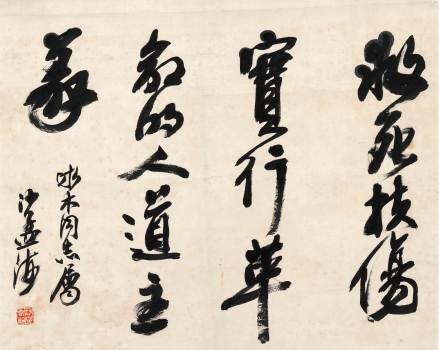 救死扶傷
實行革
命的人道主
義
木同志屬
沙孟海